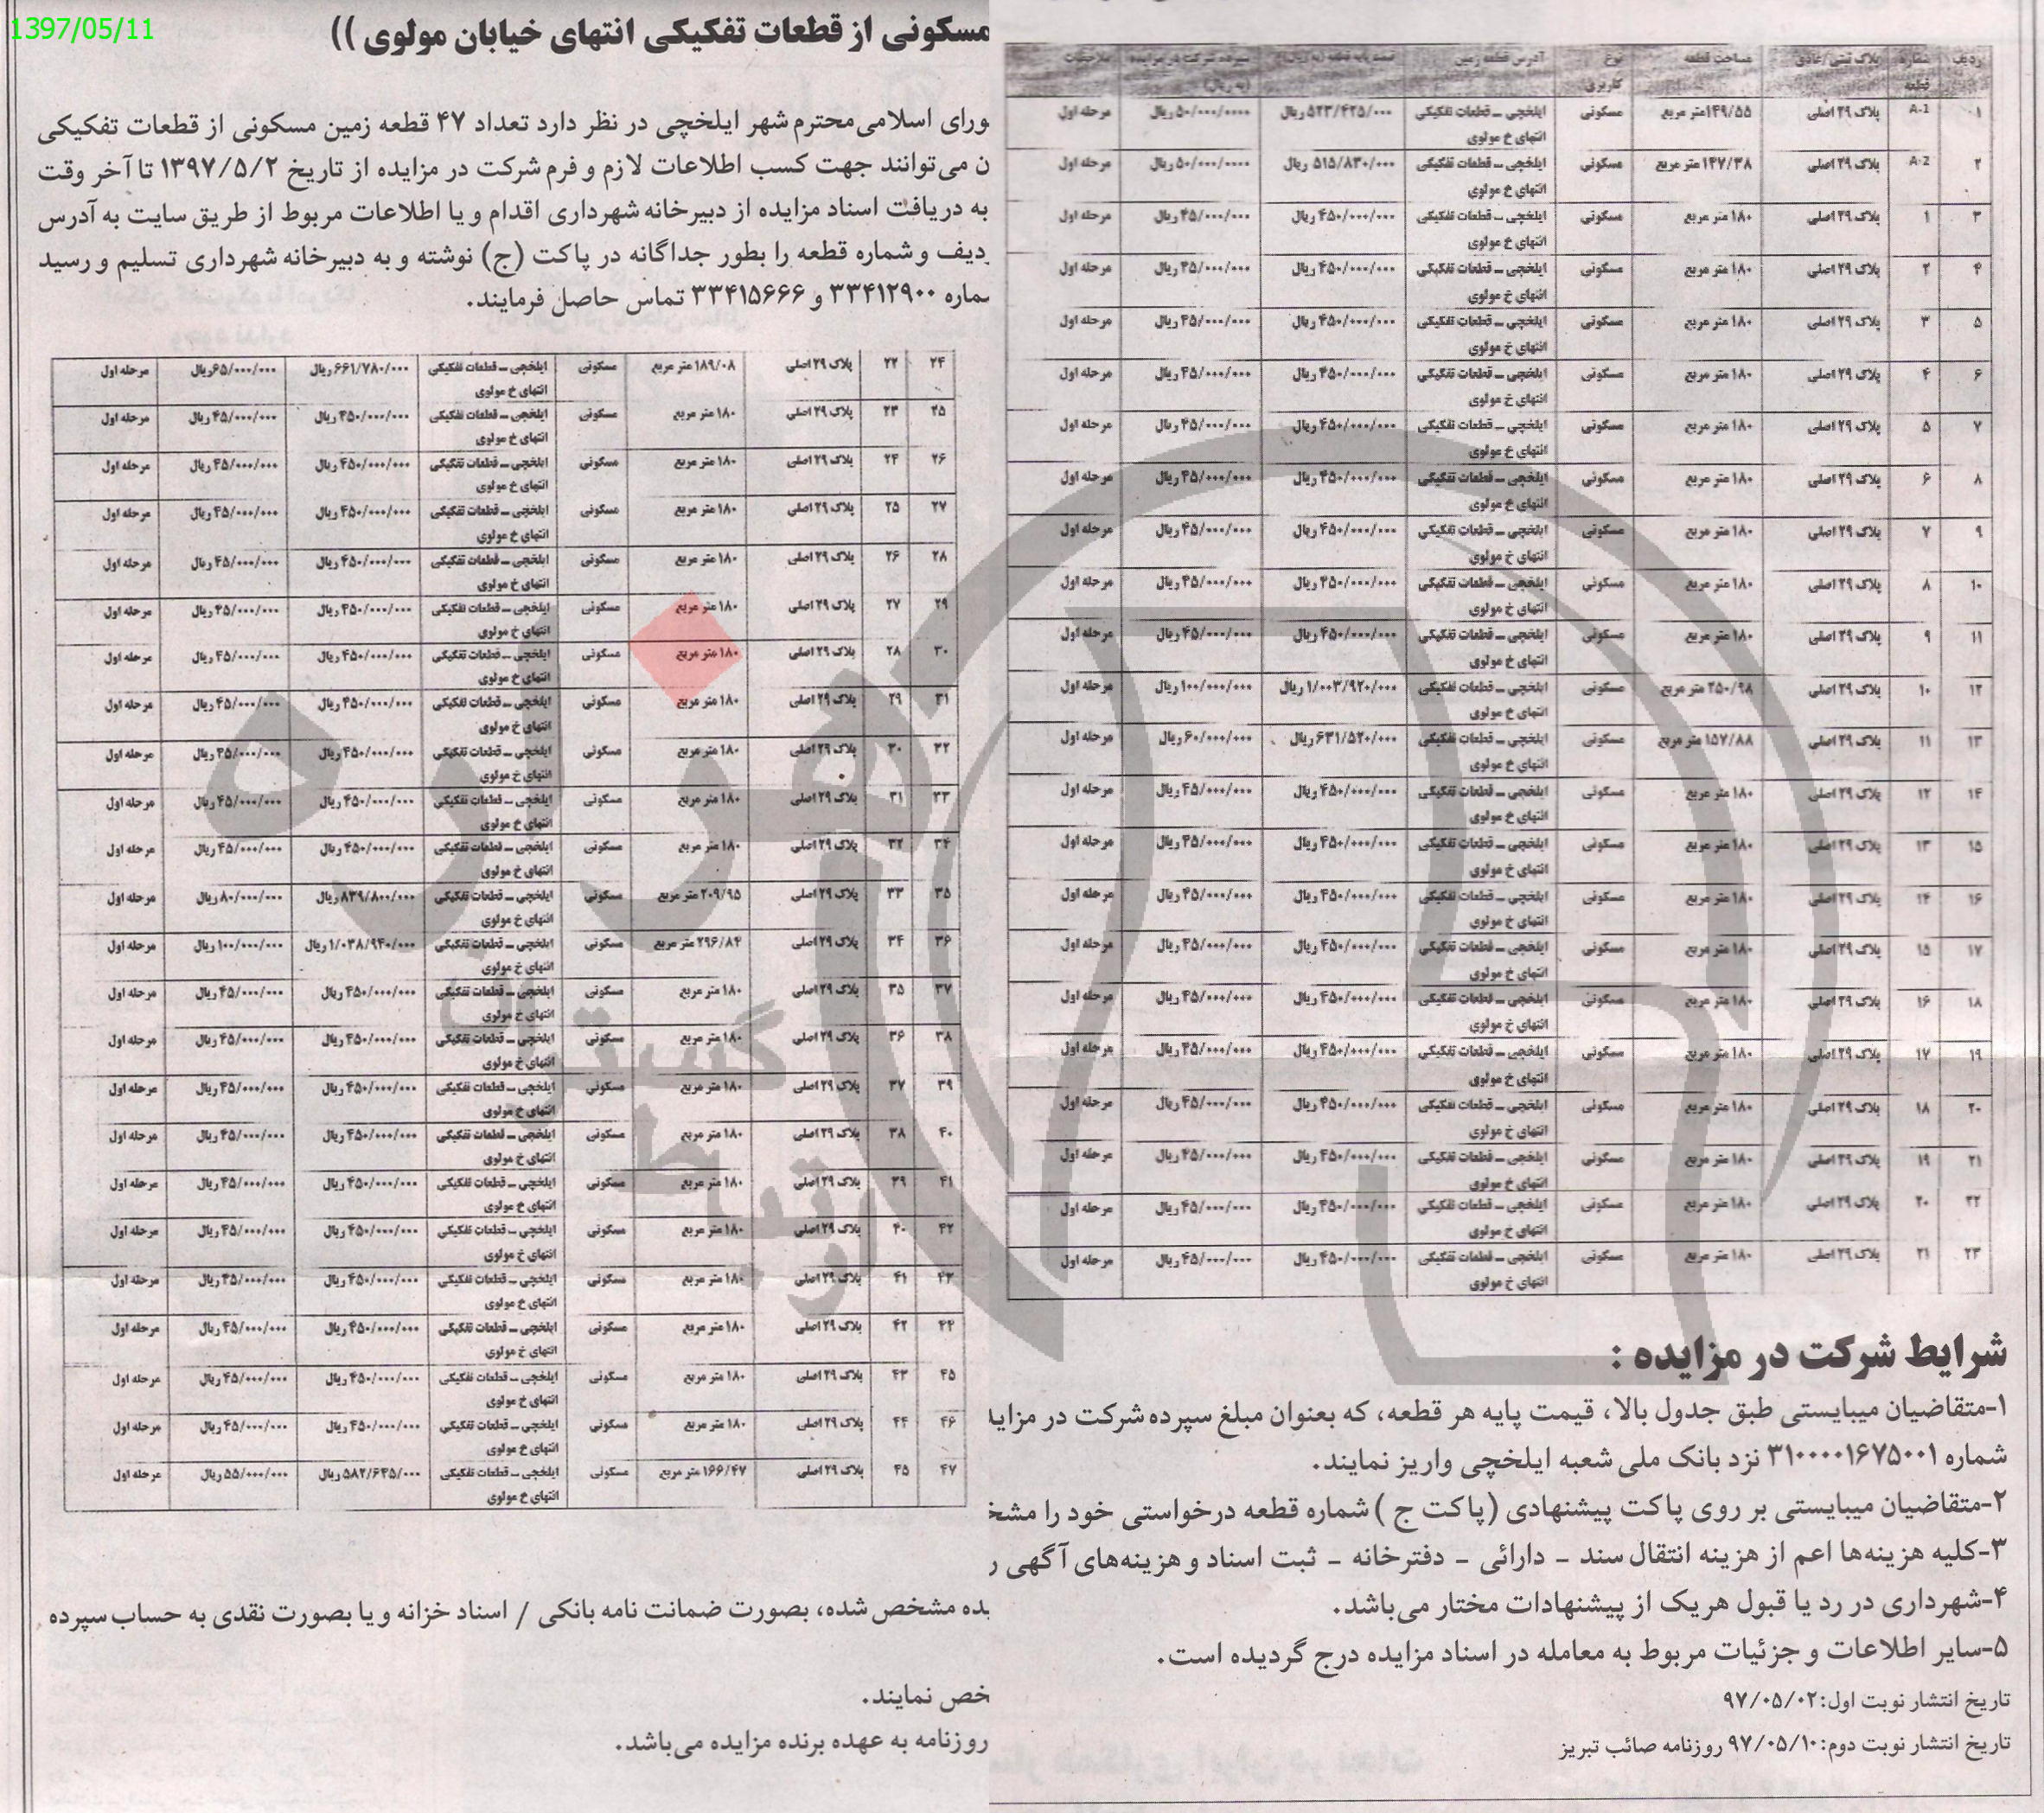 1397/05/11
مسکونی از قطعات تفکیکی انتهای خیابان مولوی ))
ورای اسلامی محترم شهر ایلخچی در نظر دارد تعداد ۴۷ قطعه زمین مسکونی از قطعات تفکیکی
ن می‌توانند جهت کسب اطلاعات لازم و فرم شرکت در مزایده از تاریخ ۱۳۹۷/۵/۲ تا آخر وقت
به دریافت اسناد مزایده از دبیرخانه شهرداری اقدام و یا اطلاعات مربوط از طریق سایت به آدرس
دیف و شماره قطعه را بطور جداگانه در پاکت (ج) نوشته و به دبیرخانه شهرداری تسلیم و رسید
ماره ۳۳۴۱۲۹۰۰ و ۳۳۴۱۵۶۶۶ تماس حاصل فرمایند.
ردیف شماره قطعه پلاک ثبتی/عادی مساحت قطعه نوع کاربری آدرس قطعه زمین قیمت پایه قطعه (به ریال) سپرده شرکت در مزایده (به ریال) ملاحظات
۰۱ A-1 پلاک ۲۹ اصلی ۱۴۹/۵۵ متر مربع مسکونی ایلخچی ــ قطعات تفکیکی انتهای خ مولوی ۵۲۳/۴۲۵/۰۰۰ ریال ۵۰/۰۰۰/۰۰۰۰ ریال مرحله اول
۲ A-2 پلاک ۲۹ اصلی ۱۴۷/۳۸ متر مربع مسکونی ایلخچی ــ قطعات تفکیکی انتهای خ مولوی ۵۱۵/۸۳۰/۰۰۰ ریال ۵۰/۰۰۰/۰۰۰۰ ریال مرحله اول
۳ ۱ پلاک ۲۹ اصلی ۱۸۰ متر مربع مسکونی ایلخچی ــ قطعات تفکیکی انتهای خ مولوی ۴۵۰/۰۰۰/۰۰۰ ریال ۴۵/۰۰۰/۰۰۰ ریال مرحله اول
۴ ۲ پلاک ۲۹ اصلی ۱۸۰ متر مربع مسکونی ایلخچی ــ قطعات تفکیکی انتهای خ مولوی ۴۵۰/۰۰۰/۰۰۰ ریال ۴۵/۰۰۰/۰۰۰ ریال مرحله اول
۵ ۳ پلاک ۲۹ اصلی ۱۸۰ متر مربع مسکونی ایلخچی ــ قطعات تفکیکی انتهای خ مولوی ۴۵۰/۰۰۰/۰۰۰ ریال ۴۵/۰۰۰/۰۰۰ ریال مرحله اول
۶ ۴ پلاک ۲۹ اصلی ۱۸۰ متر مربع مسکونی ایلخچی ــ قطعات تفکیکی انتهای خ مولوی ۴۵۰/۰۰۰/۰۰۰ ریال ۴۵/۰۰۰/۰۰۰ ریال مرحله اول
۷ ۵ پلاک ۲۹ اصلی ۱۸۰ متر مربع مسکونی ایلخچی ــ قطعات تفکیکی انتهای خ مولوی ۴۵۰/۰۰۰/۰۰۰ ریال ۴۵/۰۰۰/۰۰۰ ریال مرحله اول
۸ ۶ پلاک ۲۹ اصلی ۱۸۰ متر مربع مسکونی ایلخچی ــ قطعات تفکیکی انتهای خ مولوی ۴۵۰/۰۰۰/۰۰۰ ریال ۴۵/۰۰۰/۰۰۰ ریال مرحله اول
۹ ۷ پلاک ۲۹ اصلی ۱۸۰ متر مربع مسکونی ایلخچی ــ قطعات تفکیکی انتهای خ مولوی ۴۵۰/۰۰۰/۰۰۰ ریال ۴۵/۰۰۰/۰۰۰ ریال مرحله اول
۱۰ ۸ پلاک ۲۹ اصلی ۱۸۰ متر مربع مسکونی ایلخچی ــ قطعات تفکیکی انتهای خ مولوی ۴۵۰/۰۰۰/۰۰۰ ریال ۴۵/۰۰۰/۰۰۰ ریال مرحله اول
۱۱ ۹ پلاک ۲۹ اصلی ۱۸۰ متر مربع مسکونی ایلخچی ــ قطعات تفکیکی انتهای خ مولوی ۴۵۰/۰۰۰/۰۰۰ ریال ۴۵/۰۰۰/۰۰۰ ریال مرحله اول
۱۲ ۱۰ پلاک ۲۹ اصلی ۲۵۰/۹۸ متر مربع مسکونی ایلخچی ــ قطعات تفکیکی انتهای خ مولوی ۱/۰۰۳/۹۲۰/۰۰۰ ریال ۱۰۰/۰۰۰/۰۰۰ ریال مرحله اول
۱۳ ۱۱ پلاک ۲۹ اصلی ۱۵۷/۸۸ متر مربع مسکونی ایلخچی ــ قطعات تفکیکی انتهای خ مولوی ۶۳۱/۵۲۰/۰۰۰ ریال ۶۰/۰۰۰/۰۰۰ ریال مرحله اول
۱۴ ۱۲ پلاک ۲۹ اصلی ۱۸۰ متر مربع مسکونی ایلخچی ــ قطعات تفکیکی انتهای خ مولوی ۴۵۰/۰۰۰/۰۰۰ ریال ۴۵/۰۰۰/۰۰۰ ریال مرحله اول
۱۵ ۱۳ پلاک ۲۹ اصلی ۱۸۰ متر مربع مسکونی ایلخچی ــ قطعات تفکیکی انتهای خ مولوی ۴۵۰/۰۰۰/۰۰۰ ریال ۴۵/۰۰۰/۰۰۰ ریال مرحله اول
۱۶ ۱۴ پلاک ۲۹ اصلی ۱۸۰ متر مربع مسکونی ایلخچی ــ قطعات تفکیکی انتهای خ مولوی ۴۵۰/۰۰۰/۰۰۰ ریال ۴۵/۰۰۰/۰۰۰ ریال مرحله اول
۱۷ ۱۵ پلاک ۲۹ اصلی ۱۸۰ متر مربع مسکونی ایلخچی ــ قطعات تفکیکی انتهای خ مولوی ۴۵۰/۰۰۰/۰۰۰ ریال ۴۵/۰۰۰/۰۰۰ ریال مرحله اول
۱۸ ۱۶ پلاک ۲۹ اصلی ۱۸۰ متر مربع مسکونی ایلخچی ــ قطعات تفکیکی انتهای خ مولوی ۴۵۰/۰۰۰/۰۰۰ ریال ۴۵/۰۰۰/۰۰۰ ریال مرحله اول
۱۹ ۱۷ پلاک ۲۹ اصلی ۱۸۰ متر مربع مسکونی ایلخچی ــ قطعات تفکیکی انتهای خ مولوی ۴۵۰/۰۰۰/۰۰۰ ریال ۴۵/۰۰۰/۰۰۰ ریال مرحله اول
۲۰ ۱۸ پلاک ۲۹ اصلی ۱۸۰ متر مربع مسکونی ایلخچی ــ قطعات تفکیکی انتهای خ مولوی ۴۵۰/۰۰۰/۰۰۰ ریال ۴۵/۰۰۰/۰۰۰ ریال مرحله اول
۲۱ ۱۹ پلاک ۲۹ اصلی ۱۸۰ متر مربع مسکونی ایلخچی ــ قطعات تفکیکی انتهای خ مولوی ۴۵۰/۰۰۰/۰۰۰ ریال ۴۵/۰۰۰/۰۰۰ ریال مرحله اول
۲۲ ۲۰ پلاک ۲۹ اصلی ۱۸۰ متر مربع مسکونی ایلخچی ــ قطعات تفکیکی انتهای خ مولوی ۴۵۰/۰۰۰/۰۰۰ ریال ۴۵/۰۰۰/۰۰۰ ریال مرحله اول
۲۳ ۲۱ پلاک ۲۹ اصلی ۱۸۰ متر مربع مسکونی ایلخچی ــ قطعات تفکیکی انتهای خ مولوی ۴۵۰/۰۰۰/۰۰۰ ریال ۴۵/۰۰۰/۰۰۰ ریال مرحله اول
۲۴ ۲۲ پلاک ۲۹ اصلی ۱۸۹/۰۸ متر مربع مسکونی ایلخچی ــ قطعات تفکیکی انتهای خ مولوی ۶۶۱/۷۸۰/۰۰۰ ریال ۶۵/۰۰۰/۰۰۰ ریال مرحله اول
۲۵ ۲۳ پلاک ۲۹ اصلی ۱۸۰ متر مربع مسکونی ایلخچی ــ قطعات تفکیکی انتهای خ مولوی ۴۵۰/۰۰۰/۰۰۰ ریال ۴۵/۰۰۰/۰۰۰ ریال مرحله اول
۲۶ ۲۴ پلاک ۲۹ اصلی ۱۸۰ متر مربع مسکونی ایلخچی ــ قطعات تفکیکی انتهای خ مولوی ۴۵۰/۰۰۰/۰۰۰ ریال ۴۵/۰۰۰/۰۰۰ ریال مرحله اول
۲۷ ۲۵ پلاک ۲۹ اصلی ۱۸۰ متر مربع مسکونی ایلخچی ــ قطعات تفکیکی انتهای خ مولوی ۴۵۰/۰۰۰/۰۰۰ ریال ۴۵/۰۰۰/۰۰۰ ریال مرحله اول
۲۸ ۲۶ پلاک ۲۹ اصلی ۱۸۰ متر مربع مسکونی ایلخچی ــ قطعات تفکیکی انتهای خ مولوی ۴۵۰/۰۰۰/۰۰۰ ریال ۴۵/۰۰۰/۰۰۰ ریال مرحله اول
۲۹ ۲۷ پلاک ۲۹ اصلی ۱۸۰ متر مربع مسکونی ایلخچی ــ قطعات تفکیکی انتهای خ مولوی ۴۵۰/۰۰۰/۰۰۰ ریال ۴۵/۰۰۰/۰۰۰ ریال مرحله اول
۳۰ ۲۸ پلاک ۲۹ اصلی ۱۸۰ متر مربع مسکونی ایلخچی ــ قطعات تفکیکی انتهای خ مولوی ۴۵۰/۰۰۰/۰۰۰ ریال ۴۵/۰۰۰/۰۰۰ ریال مرحله اول
۳۱ ۲۹ پلاک ۲۹ اصلی ۱۸۰ متر مربع مسکونی ایلخچی ــ قطعات تفکیکی انتهای خ مولوی ۴۵۰/۰۰۰/۰۰۰ ریال ۴۵/۰۰۰/۰۰۰ ریال مرحله اول
۳۲ ۳۰ پلاک ۲۹ اصلی ۱۸۰ متر مربع مسکونی ایلخچی ــ قطعات تفکیکی انتهای خ مولوی ۴۵۰/۰۰۰/۰۰۰ ریال ۴۵/۰۰۰/۰۰۰ ریال مرحله اول
۳۳ ۳۱ پلاک ۲۹ اصلی ۱۸۰ متر مربع مسکونی ایلخچی ــ قطعات تفکیکی انتهای خ مولوی ۴۵۰/۰۰۰/۰۰۰ ریال ۴۵/۰۰۰/۰۰۰ ریال مرحله اول
۳۴ ۳۲ پلاک ۲۹ اصلی ۱۸۰ متر مربع مسکونی ایلخچی ــ قطعات تفکیکی انتهای خ مولوی ۴۵۰/۰۰۰/۰۰۰ ریال ۴۵/۰۰۰/۰۰۰ ریال مرحله اول
۳۵ ۳۳ پلاک ۲۹ اصلی ۲۰۹/۹۵ متر مربع مسکونی ایلخچی ــ قطعات تفکیکی انتهای خ مولوی ۸۳۹/۸۰۰/۰۰۰ ریال ۸۰/۰۰۰/۰۰۰ ریال مرحله اول
۳۶ ۳۴ پلاک ۲۹ اصلی ۲۹۶/۸۴ متر مربع مسکونی ایلخچی ــ قطعات تفکیکی انتهای خ مولوی ۱/۰۳۸/۹۴۰/۰۰۰ ریال ۱۰۰/۰۰۰/۰۰۰ ریال مرحله اول
۳۷ ۳۵ پلاک ۲۹ اصلی ۱۸۰ متر مربع مسکونی ایلخچی ــ قطعات تفکیکی انتهای خ مولوی ۴۵۰/۰۰۰/۰۰۰ ریال ۴۵/۰۰۰/۰۰۰ ریال مرحله اول
۳۸ ۳۶ پلاک ۲۹ اصلی ۱۸۰ متر مربع مسکونی ایلخچی ــ قطعات تفکیکی انتهای خ مولوی ۴۵۰/۰۰۰/۰۰۰ ریال ۴۵/۰۰۰/۰۰۰ ریال مرحله اول
۳۹ ۳۷ پلاک ۲۹ اصلی ۱۸۰ متر مربع مسکونی ایلخچی ــ قطعات تفکیکی انتهای خ مولوی ۴۵۰/۰۰۰/۰۰۰ ریال ۴۵/۰۰۰/۰۰۰ ریال مرحله اول
۴۰ ۳۸ پلاک ۲۹ اصلی ۱۸۰ متر مربع مسکونی ایلخچی ــ قطعات تفکیکی انتهای خ مولوی ۴۵۰/۰۰۰/۰۰۰ ریال ۴۵/۰۰۰/۰۰۰ ریال مرحله اول
۴۱ ۳۹ پلاک ۲۹ اصلی ۱۸۰ متر مربع مسکونی ایلخچی ــ قطعات تفکیکی انتهای خ مولوی ۴۵۰/۰۰۰/۰۰۰ ریال ۴۵/۰۰۰/۰۰۰ ریال مرحله اول
۴۲ ۴۰ پلاک ۲۹ اصلی ۱۸۰ متر مربع مسکونی ایلخچی ــ قطعات تفکیکی انتهای خ مولوی ۴۵۰/۰۰۰/۰۰۰ ریال ۴۵/۰۰۰/۰۰۰ ریال مرحله اول
۴۳ ۴۱ پلاک ۲۹ اصلی ۱۸۰ متر مربع مسکونی ایلخچی ــ قطعات تفکیکی انتهای خ مولوی ۴۵۰/۰۰۰/۰۰۰ ریال ۴۵/۰۰۰/۰۰۰ ریال مرحله اول
۴۴ ۴۲ پلاک ۲۹ اصلی ۱۸۰ متر مربع مسکونی ایلخچی ــ قطعات تفکیکی انتهای خ مولوی ۴۵۰/۰۰۰/۰۰۰ ریال ۴۵/۰۰۰/۰۰۰ ریال مرحله اول
۴۵ ۴۳ پلاک ۲۹ اصلی ۱۸۰ متر مربع مسکونی ایلخچی ــ قطعات تفکیکی انتهای خ مولوی ۴۵۰/۰۰۰/۰۰۰ ریال ۴۵/۰۰۰/۰۰۰ ریال مرحله اول
۴۶ ۴۴ پلاک ۲۹ اصلی ۱۸۰ متر مربع مسکونی ایلخچی ــ قطعات تفکیکی انتهای خ مولوی ۴۵۰/۰۰۰/۰۰۰ ریال ۴۵/۰۰۰/۰۰۰ ریال مرحله اول
۴۷ ۴۵ پلاک ۲۹ اصلی ۱۶۶/۴۷ متر مربع مسکونی ایلخچی ــ قطعات تفکیکی انتهای خ مولوی ۵۸۲/۶۴۵/۰۰۰ ریال ۵۵/۰۰۰/۰۰۰ ریال مرحله اول
شرایط شرکت در مزایده :
۱-متقاضیان میبایستی طبق جدول بالا، قیمت پایه هر قطعه، که بعنوان مبلغ سپرده شرکت در مزاید
بده مشخص شده، بصورت ضمانت نامه بانکی / اسناد خزانه و یا بصورت نقدی به حساب سپرده
شماره ۳۱۰۰۰۰۱۶۷۵۰۰۱ نزد بانک ملی شعبه ایلخچی واریز نمایند.
۲-متقاضیان میبایستی بر روی پاکت پیشنهادی (پاکت ج ) شماره قطعه درخواستی خود را مشخ
خص نمایند.
۳-کلیه هزینه‌ها اعم از هزینه انتقال سند - دارائی - دفترخانه - ثبت اسناد و هزینه‌های آگهی ر
روزنامه به عهده برنده مزایده می‌باشد.
۴-شهرداری در رد یا قبول هریک از پیشنهادات مختار می‌باشد.
۵-سایر اطلاعات و جزئیات مربوط به معامله در اسناد مزایده درج گردیده است.
تاریخ انتشار نوبت اول: ۹۷/۰۵/۰۲
تاریخ انتشار نوبت دوم: ۹۷/۰۵/۱۰ روزنامه صائب تبریز